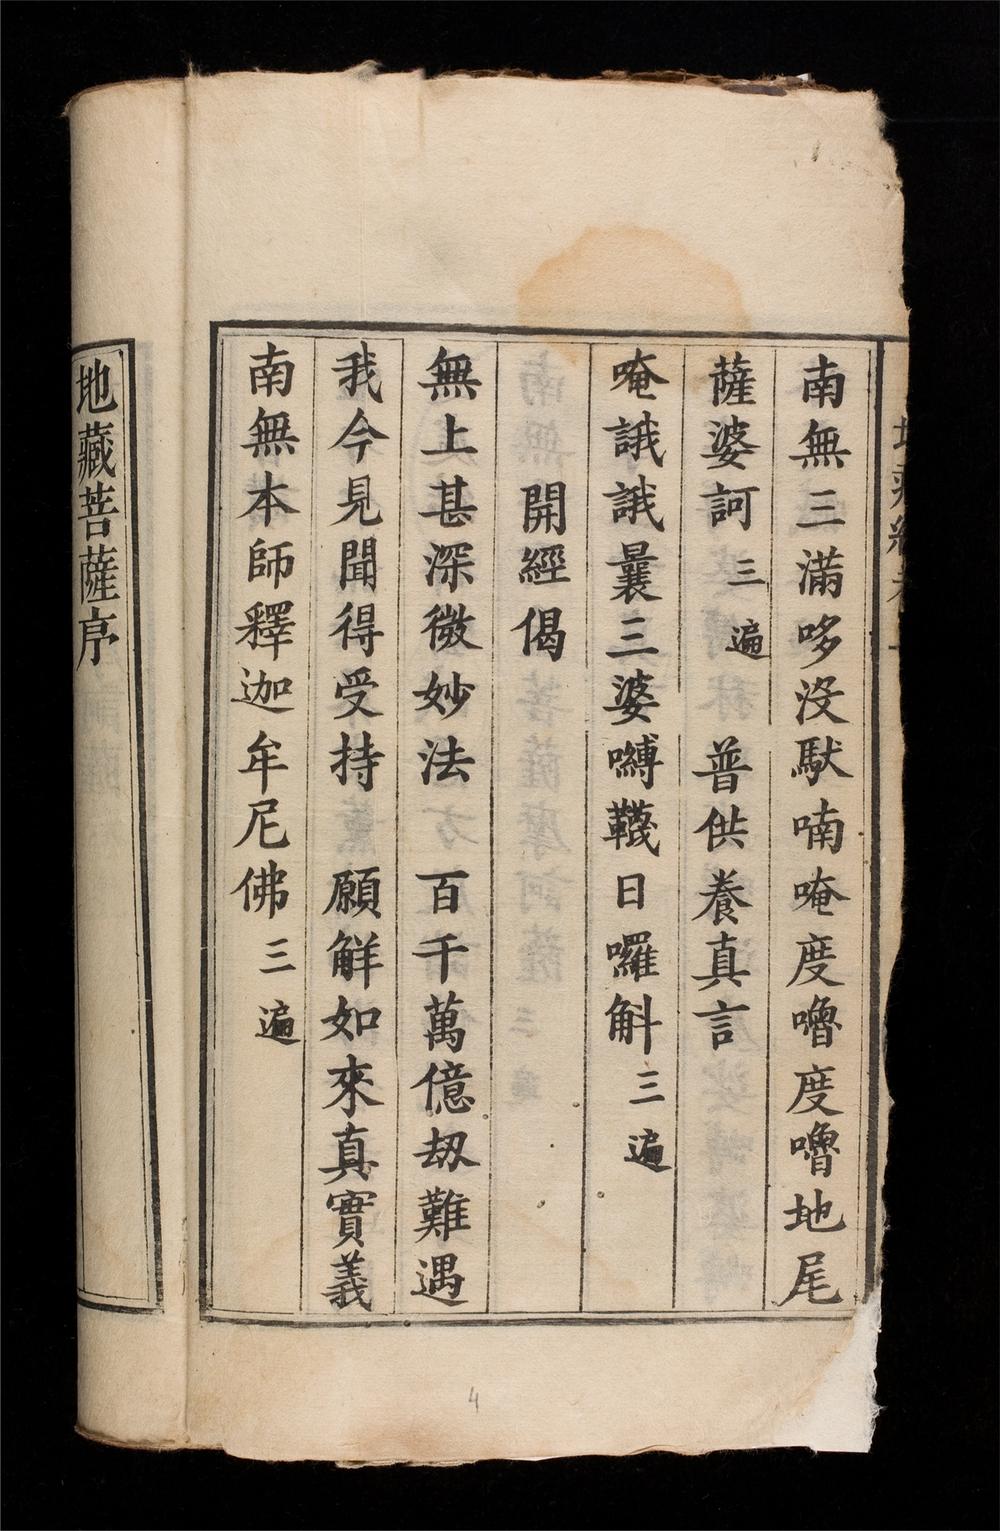 南無三滿哆沒馱喃唵度嚕度嚕地尾
薩婆訶三遍　普供養真言
唵誐誐曩三婆嚩韈日囉斛三遍
開經偈
無上甚深微妙法　百千萬億劫難遇
我今見聞得受持　願解如來真實義
南無本師釋迦牟尼佛三遍
地藏菩薩序